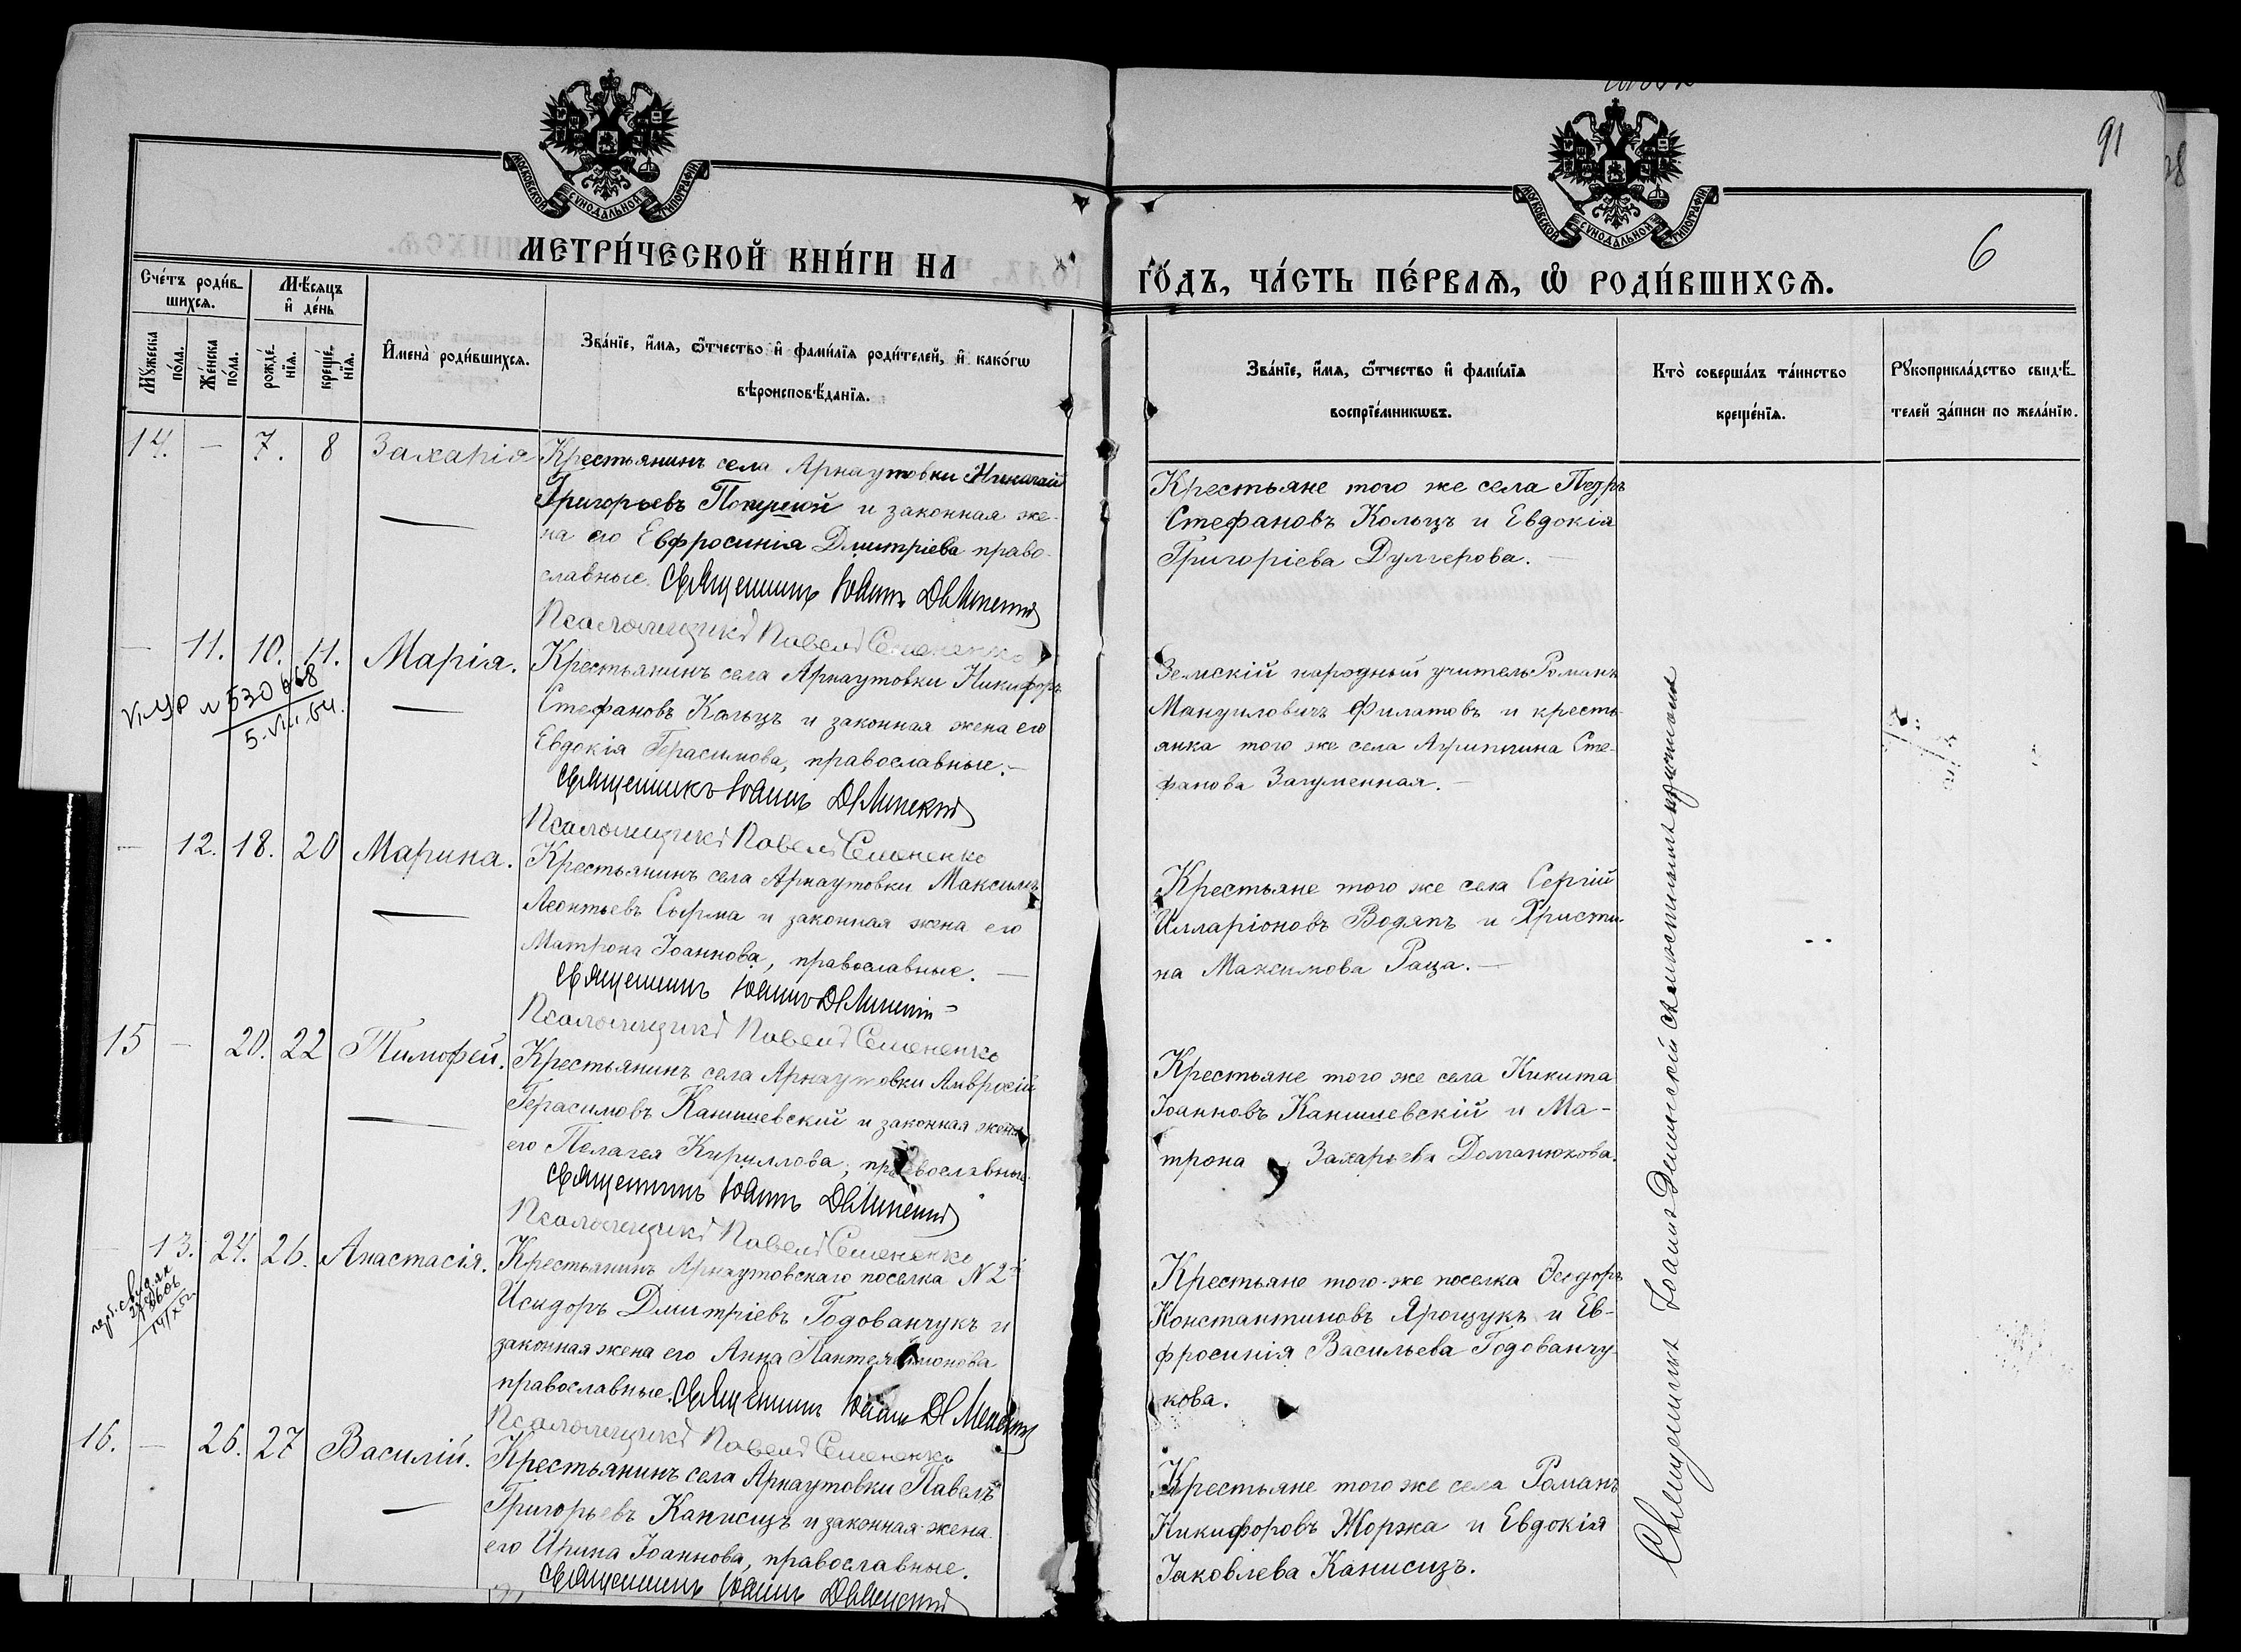 91
6
МОСКОВСКОЙ СУНОДАЛЬНОЙ ТИПОГРАФІИ
МОСКОВСКОЙ СУНОДАЛЬНОЙ ТИПОГРАФІИ
МЕТРИ́ЧЕСКОЙ КНИ́ГИ НА
ГО́ДЪ, ЧА́СТЬ ПЕ́РВАѦ, Ѡ҆ РОДИ́ВШИХСѦ.
Сче́тъ роди́в-
шихсѧ.
Мѣ́сѧцъ
и҆ де́нь
Мꙋ́жеска
по́ла.
Же́нска
по́ла.
рожде́-
нїѧ.
креще́-
нїѧ.
И҆мена̀ роди́вшихсѧ.
Зва́нїе, и҆́мѧ, ѻ҆́тчество и҆ фами́лїѧ роди́телей, и҆ како́гѡ
вѣроисповѣ́данїѧ.
Зва́нїе, и҆́мѧ, ѻ҆́тчество и҆ фами́лїѧ
воспрїе́мникѡвъ.
Кто̀ соверша́лъ та́инство
креще́нїѧ.
Рꙋкоприкла́дство свидѣ́-
телей за́писи по жела́нїю.
14. — 7. 8 Захарія
Крестьянинъ села Арнаутовки
Григорьевъ и законная же-
на его Евфросинія Дмитріева право-
славные. Священникъ Іоаннъ
Псаломщикъ Павелъ Семененко
Крестьяне того же села Петръ
Стефановъ Кольцъ и Евдокія
Григоріева Дулгерова.
— 11. 10. 11. Марія.
№ 530668
5.VIII.54.
Крестьянинъ села Арнаутовки Никифоръ
Стефановъ Кольцъ и законная жена его
Евдокія Герасимова, православные.—
Священникъ Іоаннъ
Псаломщикъ Павелъ Семененко
Земскій народный учитель Романъ
Мануиловичъ Филатовъ и кресть-
янка того же села Агриппина Сте-
фанова Загуменная.—
— 12. 18. 20 Марина.
Крестьянинъ села Арнаутовки Максимъ
Леонтьевъ Сырма и законная жена его
Матрона Іоаннова, православные. —
Священникъ Іоаннъ
Псаломщикъ Павелъ Семененко
Крестьяне того же села Сергій
Илларіоновъ Водяпъ и Христи-
на Максимова Раца.—
15 — 20. 22 Тимофей.
Крестьянинъ села Арнаутовки Амвросій
Герасимовъ Канишевскій и законная жена
его Пелагея Кириллова, православные.
Священникъ Іоаннъ
Псаломщикъ Павелъ Семененко
Крестьяне того же села Никита
Іоанновъ Канишевскій и Ма-
трона Захарьева Доманюкова.
13. 24. 26. Анастасія.
Крестьянинъ Арнаутовскаго поселка N 2й
Исидоръ Дмитріевъ Годованчукъ и
законная жена его Анна Пантелеимонова
православные. Священникъ Іоаннъ
Псаломщикъ Павелъ Семененко
Крестьяне того-же поселка Ѳеодоръ
Константиновъ Ярощукъ и Ев-
фросинія Васильева Годованчу-
кова.
16. — 26. 27 Василій.
Крестьянинъ села Арнаутовки Павелъ
Григорьевъ Канисизъ и законная жена
его Ирина Іоаннова, православные.
Священникъ Іоаннъ
Крестьяне того же села Романъ
Никифоровъ Жоржа и Евдокія
Іаковлева Канисизъ.
Священникъ Іоаннъ